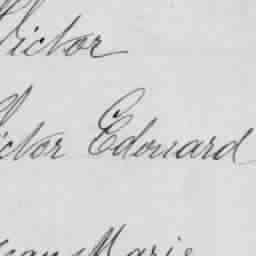 Victor
Victor Edouard
Jean Marie